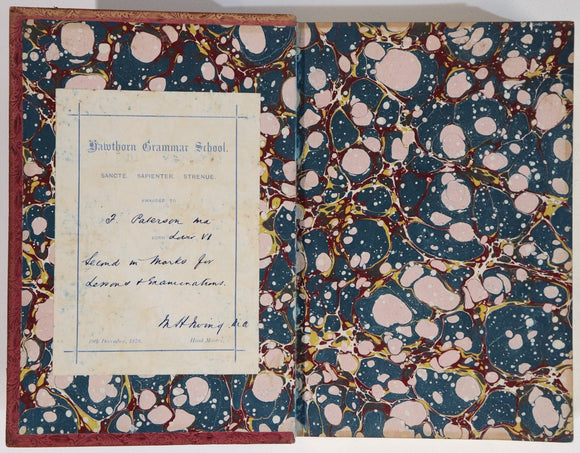 Hawthorn Grammar School.
SANCTE. SAPIENTER. STRENUE.
AWARDED TO
F. Paterson ma
FORM Lower VI
Second in Marks for
Lessons & Examinations.
M H Irving M.A
19th December, 1878. Head Master.